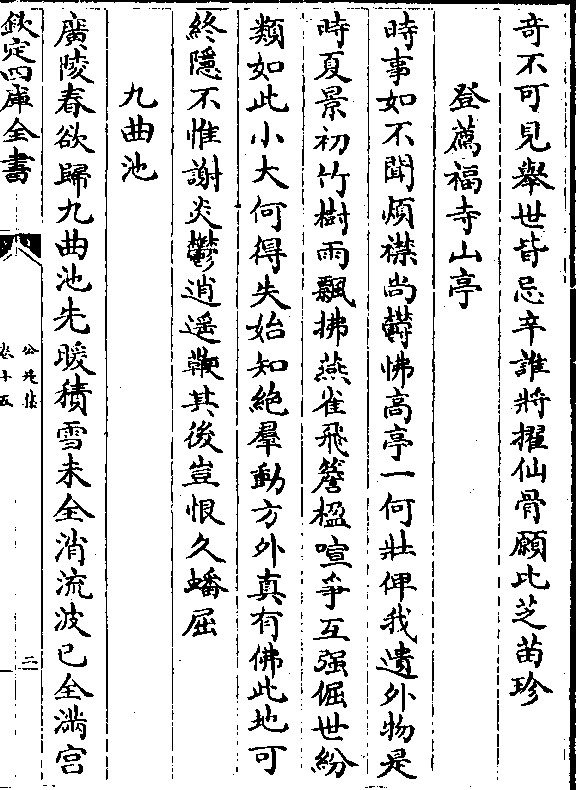 奇不可見舉世皆忌辛誰將擢仙骨願比芝苗珍
登薦福寺山亭
時事如不聞煩襟尚鬱怫高亭一何壯俾我遺外物是
時夏景初竹樹雨飄拂燕雀飛簷楹喧爭互强倔世紛
類如此小大何得失始知絶羣動方外真有佛此地可
終隱不惟謝炎鬱逍遥鞭其後豈恨久蟠屈
九曲池
廣陵春欲歸九曲池先暖積雪未全消流波已全滿宫
欽定四庫全書
公是集
卷十五
二